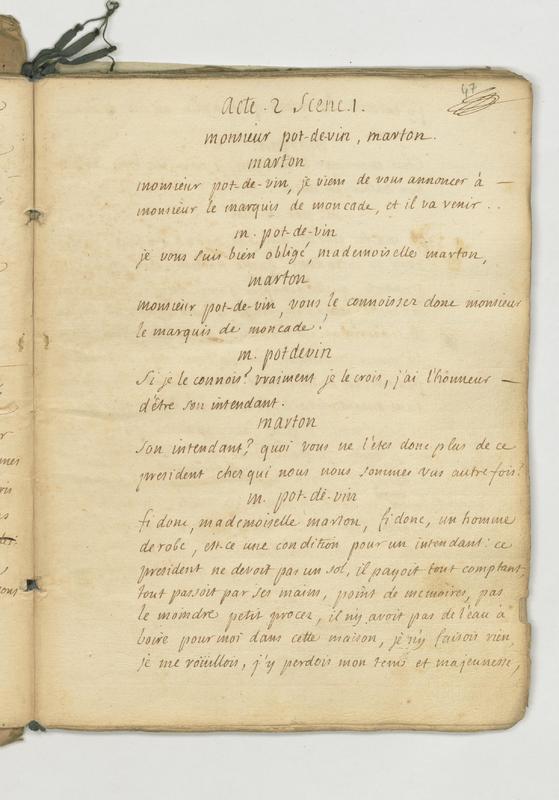 47
Acte . 2 Scene . 1 .
monsieur pot-de-vin , marton .
marton
monsieur pot-de-vin, je viens de vous annoncer à —
monsieur le marquis de moncade, et il va venir . .
m. pot-de-vin
je vous suis bien obligé, mademoiselle marton,
marton
monsieur pot-de-vin, vous le connoissez donc monsieur
le marquis de moncade !
m. potdevin
Si je le connois ? vraiment je le crois, j'ai l'hônneur —
d'être son intendant .
marton
Son intendant ? quoi vous ne l'etes donc plus de ce
president cher qui nous nous sommes vus autre fois ?
m. pot-de-vin
fi donc, mademoiselle marton, fi donc, un homme
de robe, est-ce une condition pour un intendant : ce
president ne devoit pas un sol, il payoit tout comptant,
tout passoit par ses mains, point de memoires, pas
le moindre petit procez, il n'y avoit pas de l'eau à
boire pour moi dans cette maison, je n'y faisois rien,
je me roüillois, j'y perdois mon tems et ma jeunesse,